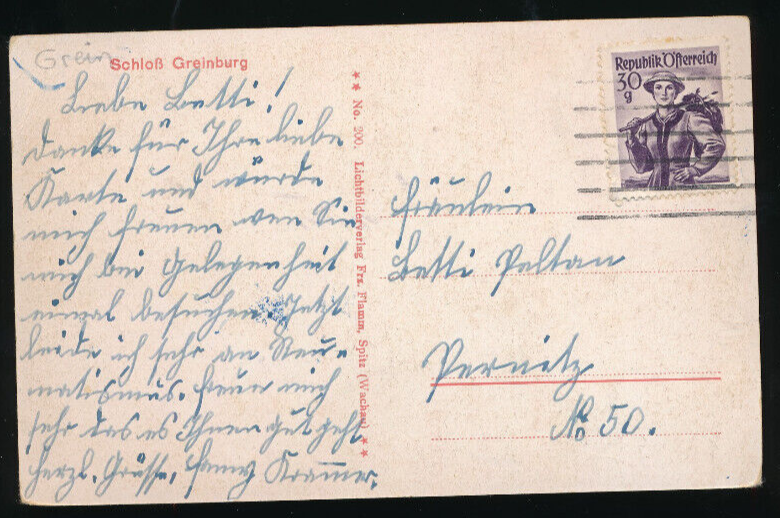 Grein
Schloß Greinburg
Liebe Betti!
Danke für Ihre liebe
Karte und würde
mich freuen wen Sie
mich bei Gelegenheit
einmal besuchen. Jetzt
leide ich sehr an Reu-
matismus. Freue mich
sehr das es Ihnen gut geht
Herzl. Grüsse, Fanny Krammer.
★★ No. 200. Lichtbilderverlag Frz. Flamm, Spitz (Wachau) ★★
Republik Österreich
30
g
Fräulein
Betti Peltan
Pernitz
No 50.